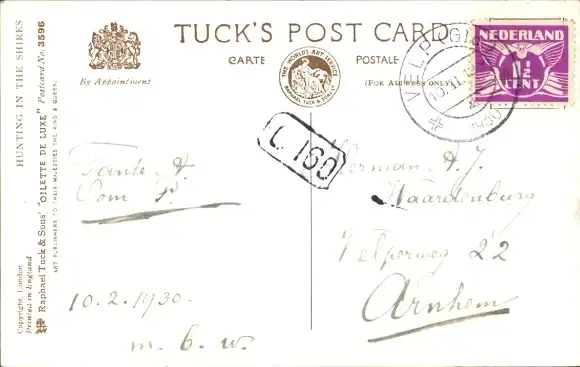 HUNTING IN THE SHIRES
Raphael Tuck & Sons' "OILETTE DE LUXE" Postcard No. 3596
ART PUBLISHERS TO THEIR MAJESTIES THE KING & QUEEN.
Copyright, London
Printed in England
By Appointment
TUCK'S POST CARD
CARTE POSTALE
(FOR ADDRESS ONLY)
THE WORLDS ART SERVICE
RAPHAEL TUCK & SONS LD
VELP (GLD)
1930
NEDERLAND
1½
CENT
L. 160
Tante A.
Oom P.
10.2.1930.
m. b. w.
Herman A. J.
Haardenburg
Velperweg 22
Arnhem